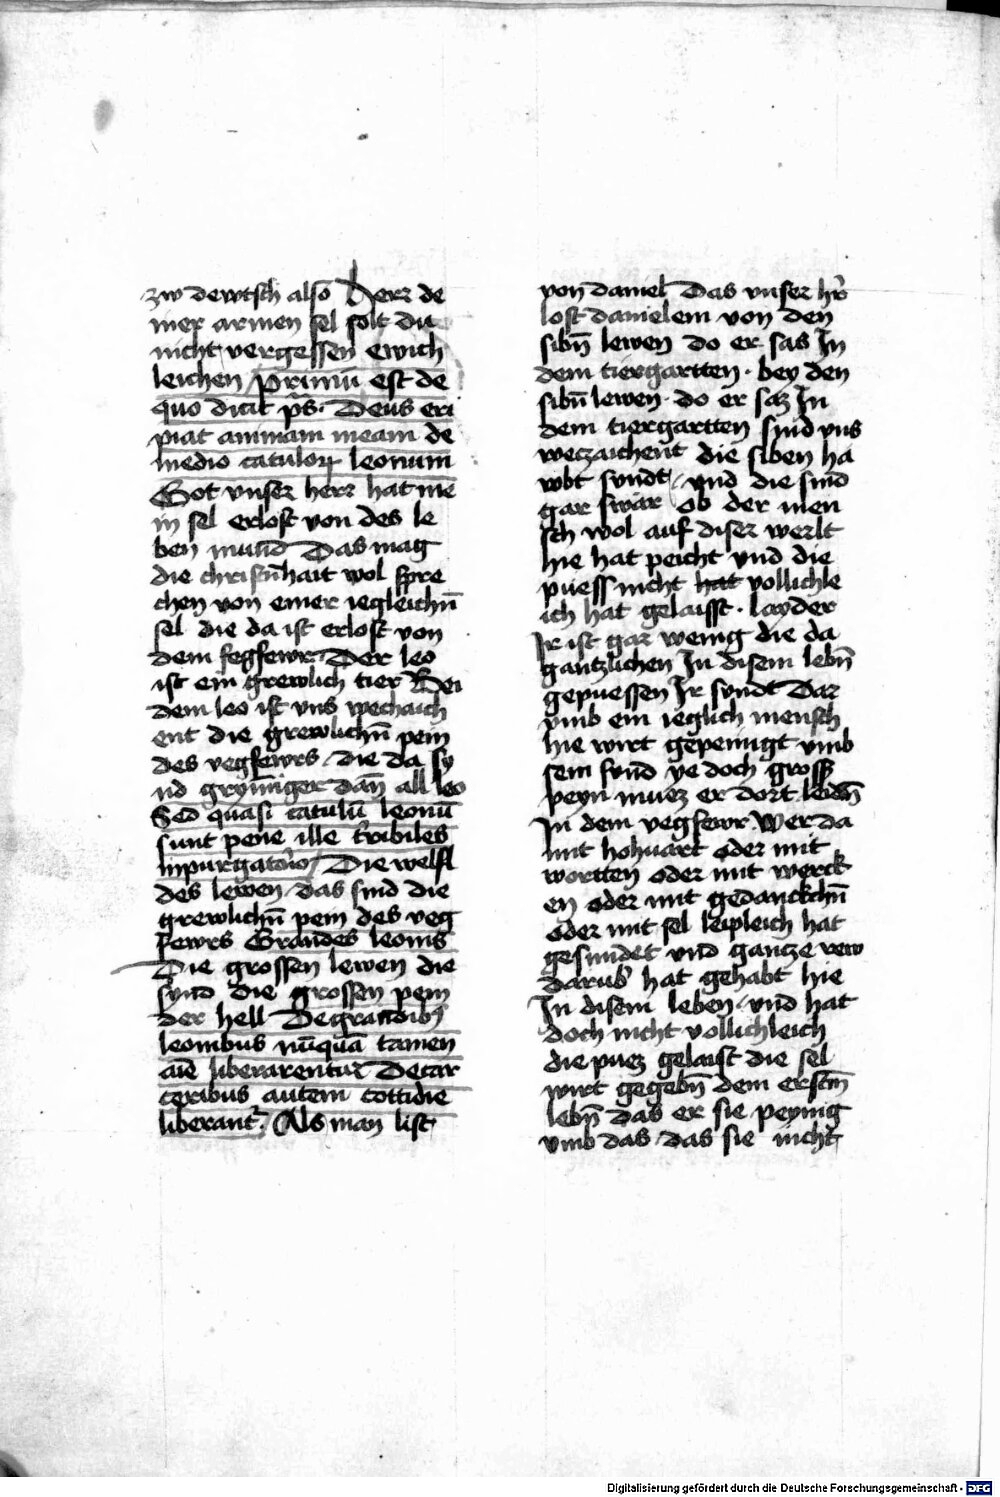 zw dewtsch also Herr de
iner armen sel solt du
nicht vergessen ewich
leichen Primū est de
quo dicit p̄s. Deus eri
piat animam meam de
medio catulorꝝ leonum
Got vnser herr hat me
in sel erlost von des le
ben mund Das mag
die christn̄hait wol spre
chen von einer iegleichn̄
sel die da ist erlost von
dem fegfewr. Der leo
ist ein grewlich tier Bei
dem leo ist vns wechaich
ent die grewlichn̄ pein
des vegfewrs die da sy
nd grym̄iger dan̄ all leo
Sed quasi catulū leonū
sunt pene ille t̄ribiles
inpurgator̄io Die welfl
des lewen das sind die
grewlichn̄ pein des veg
fewrs Grandes leonis
Die grossen lewen die
synd die grossen pein
der hell Degrandibꝰ
leonibus nūquā tamen
aīe liberarentur Decar
ceribus autem cottidie
liberant᷑. Als man list
von daniel Das vnser hr̄
lost danielem von den
sibn̄ lewen do er sas In
dem tiergartten. bey den
sibn̄ lewen. do er saz In
dem tiergartten synd vns
weczaichent die siben ha
wbt syndt vnd die sind
gar swär Ob der men
sch wol auf diser werlt
hie hat peicht vnd die
puess nicht hat vollichle
ich hat gelaisst. layder
Ir ist gar wenig die da
gantzlichen In disem lebn̄
gepuessen Ir syndt Dar
vmb ein ieglich mensch
hie wirt gepeinigt vmb
sein synd ye doch gross
peyn muez er dort leidn̄
In dem vegfewr. Wer da
mit hohuart oder mit
wortten oder mit werck
en oder mit gedanckchn̄
oder mit sel leipleich hat
gesundet vnd gancze rew
darub̄ hat gehabt hie
In disem leben vnd hat
doch nicht vollichleich
die puez gelaist die sel
wirt gegebn̄ dem erstn̄
lebn̄ das er sie peynig
vmb das das sie nicht
Digitalisierung gefördert durch die Deutsche Forschungsgemeinschaft - DFG